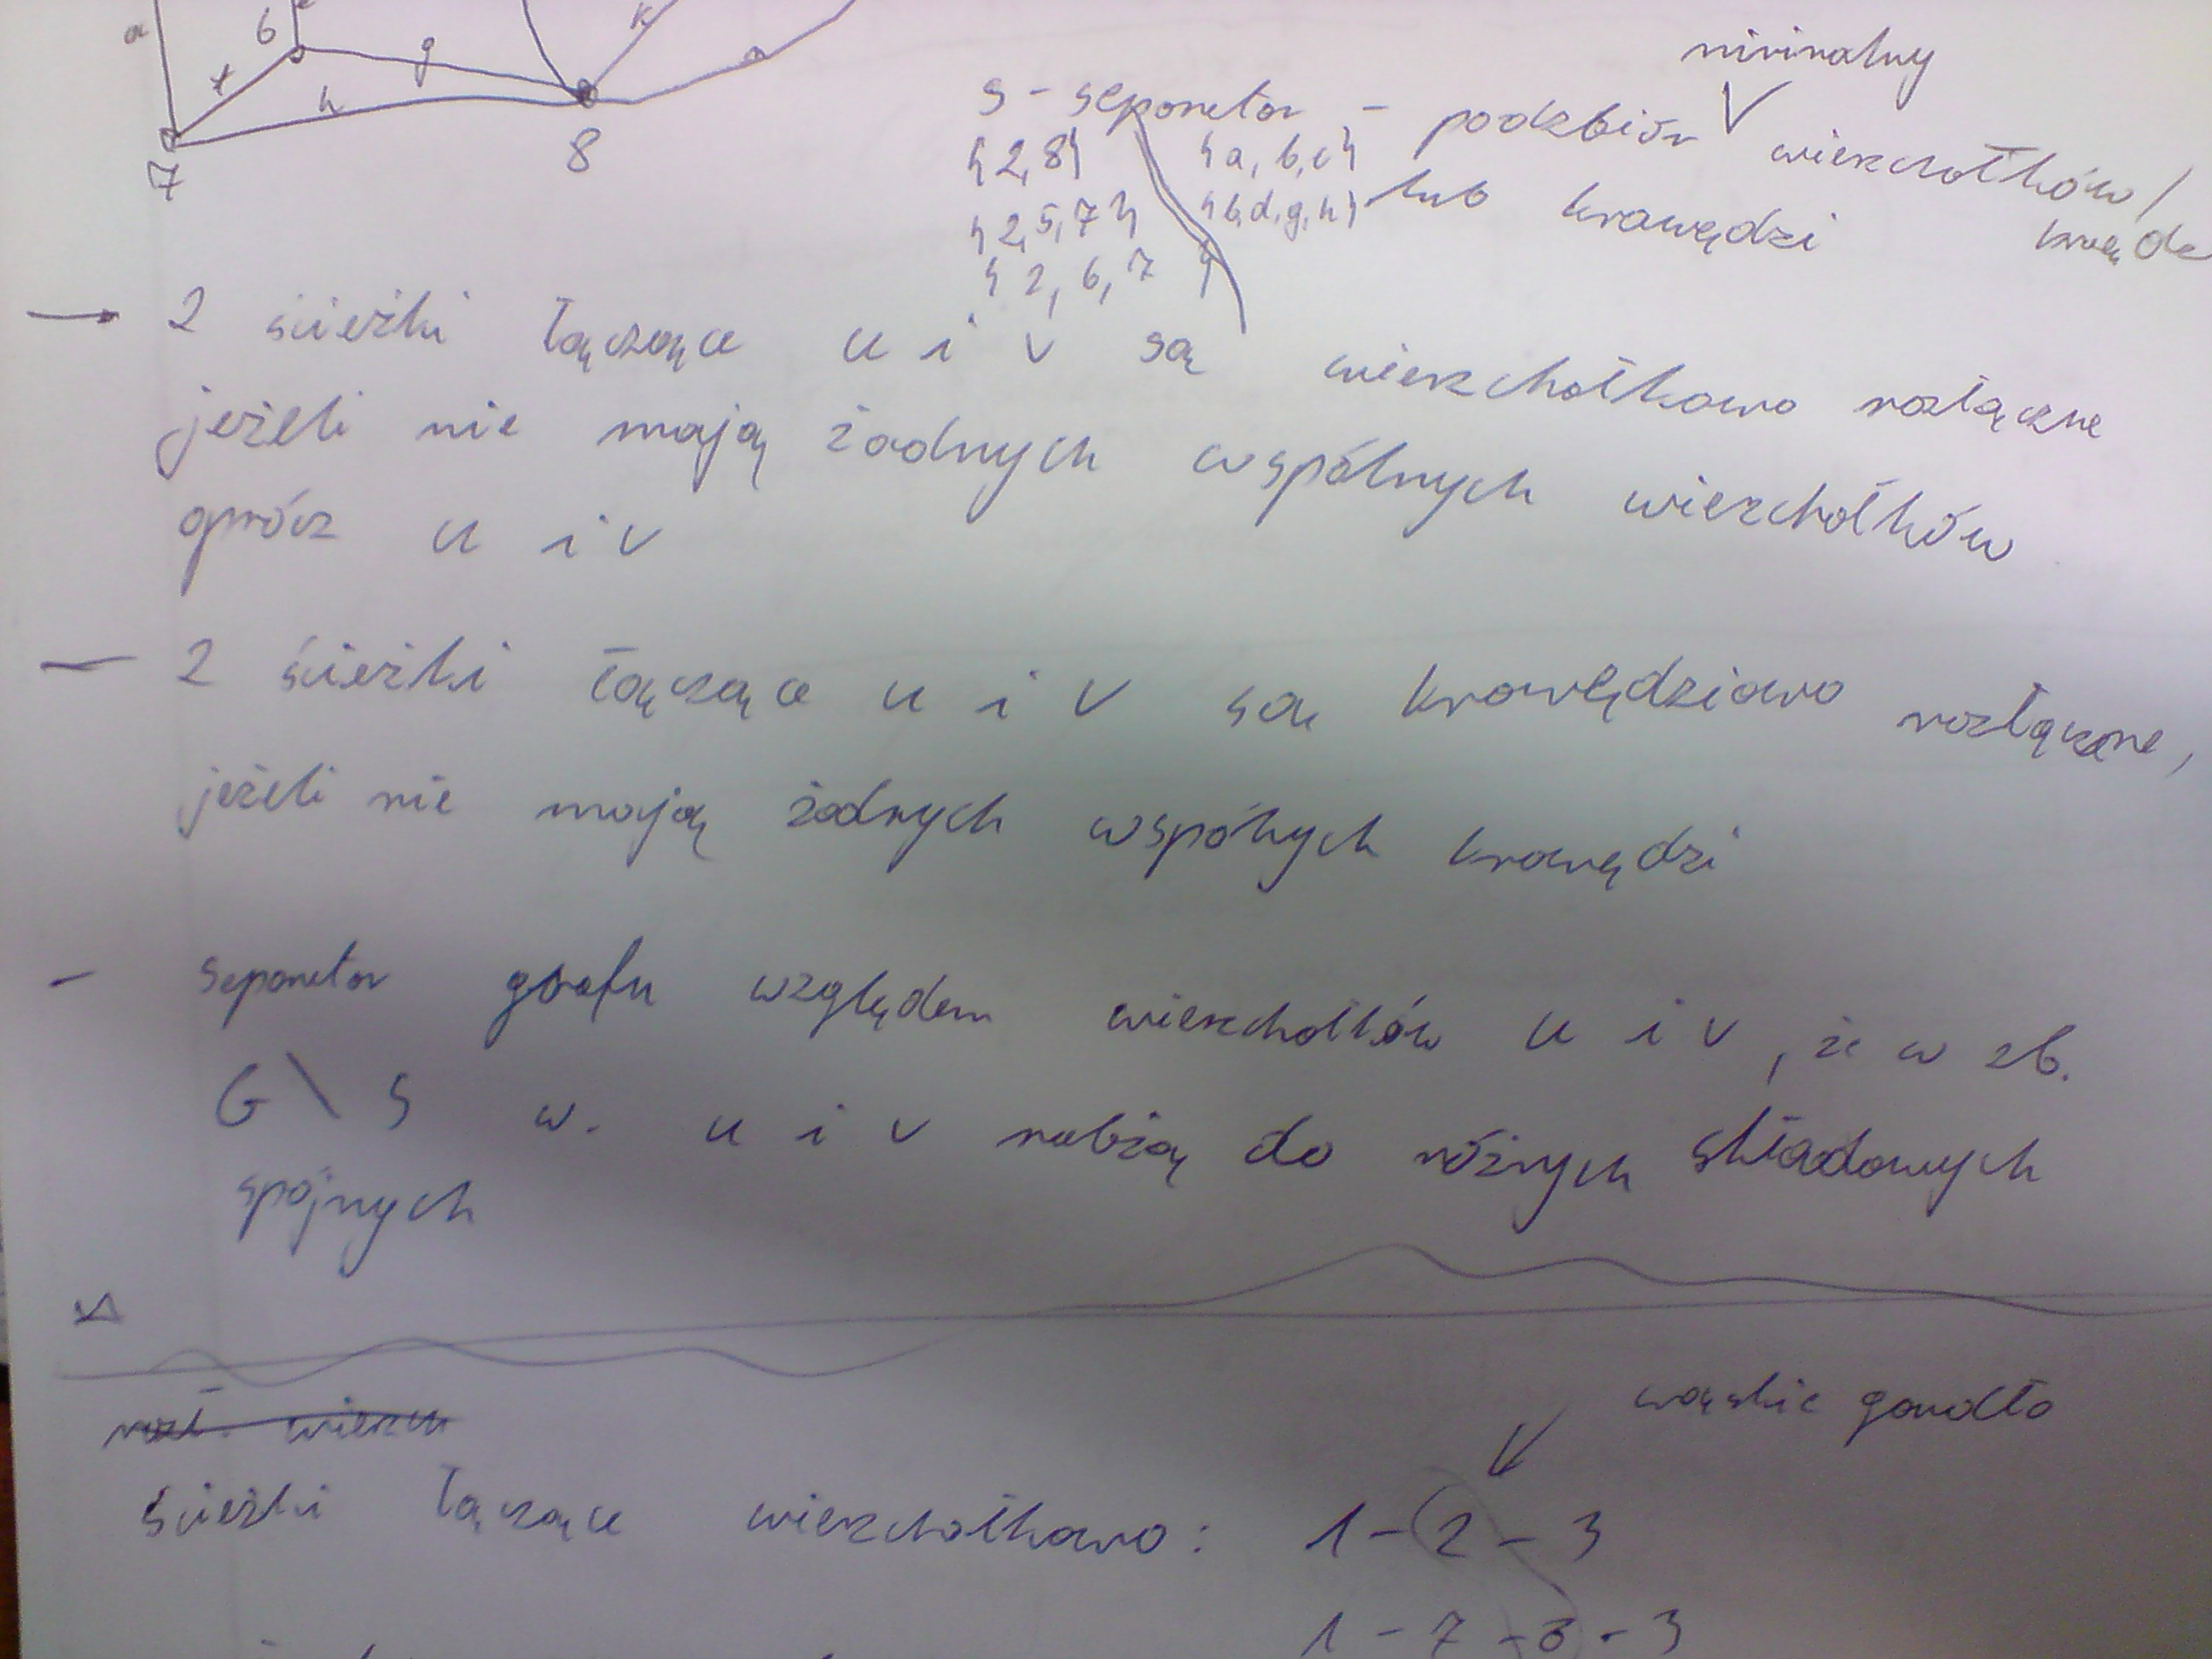 a 6 g k
f h n
7 8
minimalny
S - separator - podzbiór wierzchołków /
{2,8} {a,b,c} lub krawędzi
{2,5,7} {b,d,g,h}
{2,6,7}
→ 2 ścieżki łączące u i v są wierzchołkowo rozłączne
jeżeli nie mają żadnych wspólnych wierzchołków
oprócz u i v
— 2 ścieżki łączące u i v są krawędziowo rozłączne,
jeżeli nie mają żadnych wspólnych krawędzi
- separator grafu względem wierzchołków u i v, że w zb.
G \ S w. u i v należą do różnych składowych
spójnych
rozł. wierzch
wąskie gardło
ścieżki łączące wierzchołkowo: 1 - 2 - 3
1 - 7 - 8 - 3